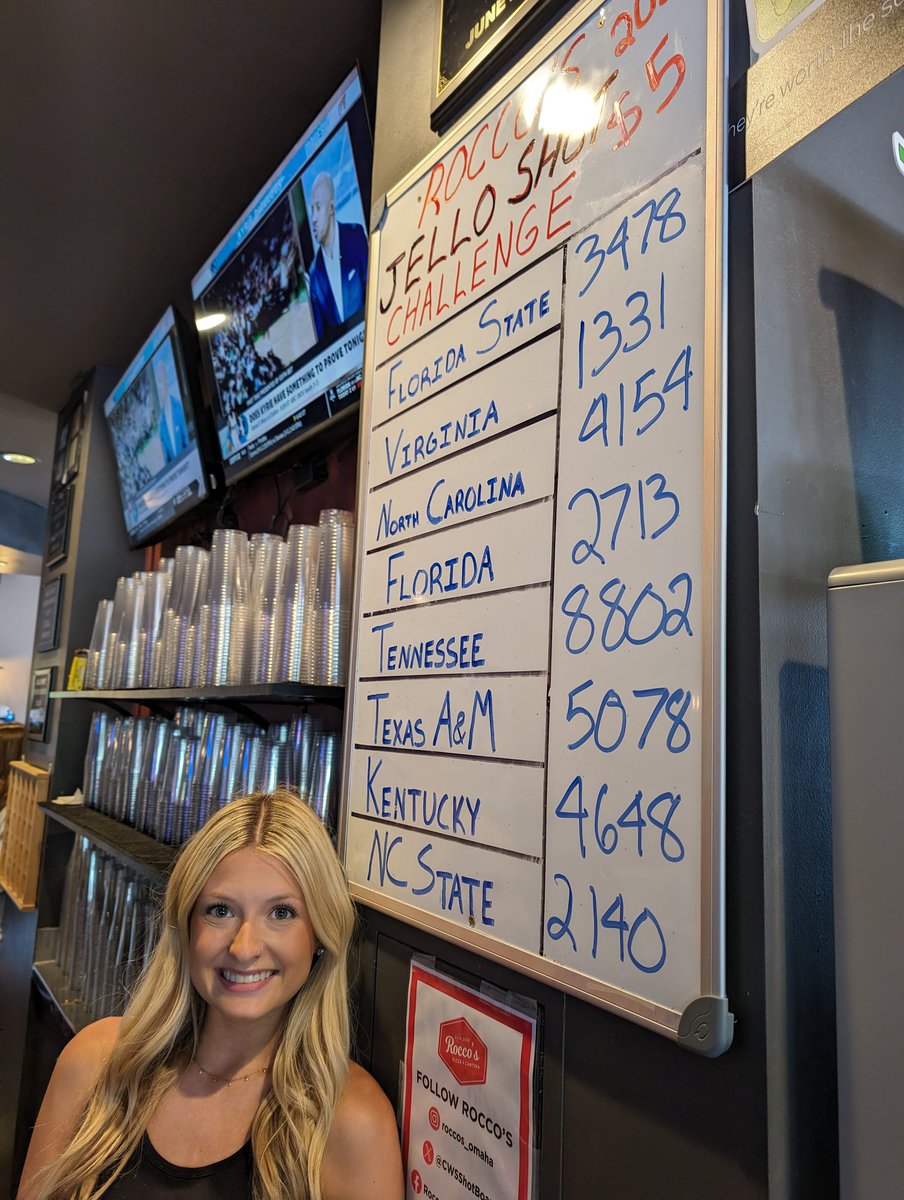 JUNE
ROCCO'S
JELLO SHOT $5
CHALLENGE
FLORIDA STATE 3478
VIRGINIA 1331
NORTH CAROLINA 4154
FLORIDA 2713
TENNESSEE 8802
TEXAS A&M 5078
KENTUCKY 4648
NC STATE 2140
they're worth the
DOES KYRIE HAVE SOMETHING TO PROVE TONIG
Rocco's
PIZZA & CANTINA
FOLLOW ROCCO'S
roccos_omaha
@CWSShotBoa
Rocco